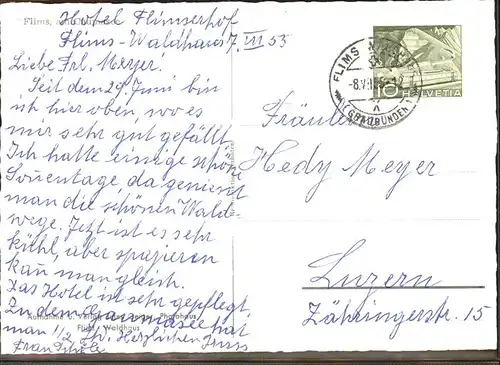 Flims,
Hotel Flimserhof
Flims-Waldhaus 7. VII 55
Liebe Frl. Meyer!
Seit dem 29 Juni bin
ich hier oben, wo es
mir sehr gut gefällt
Ich hatte einige schöne
Sonnentage, da geniesst
man die schönen Wald-
wege. Jetzt ist es sehr
kühl, aber spazieren
kan man gleich.
Das Hotel ist sehr gepflegt,
Zu dem Caumasee hat
man 1/2 St. Herzlichen Gruss
Frau
Aufnahme u. Verlag Photohaus
Flims-Waldhaus
FLIMS
-8.VII.55
(GRAUBÜNDEN)
10 HELVETIA
Fräulein
Hedy Meyer
Luzern
Zähringerstr. 15